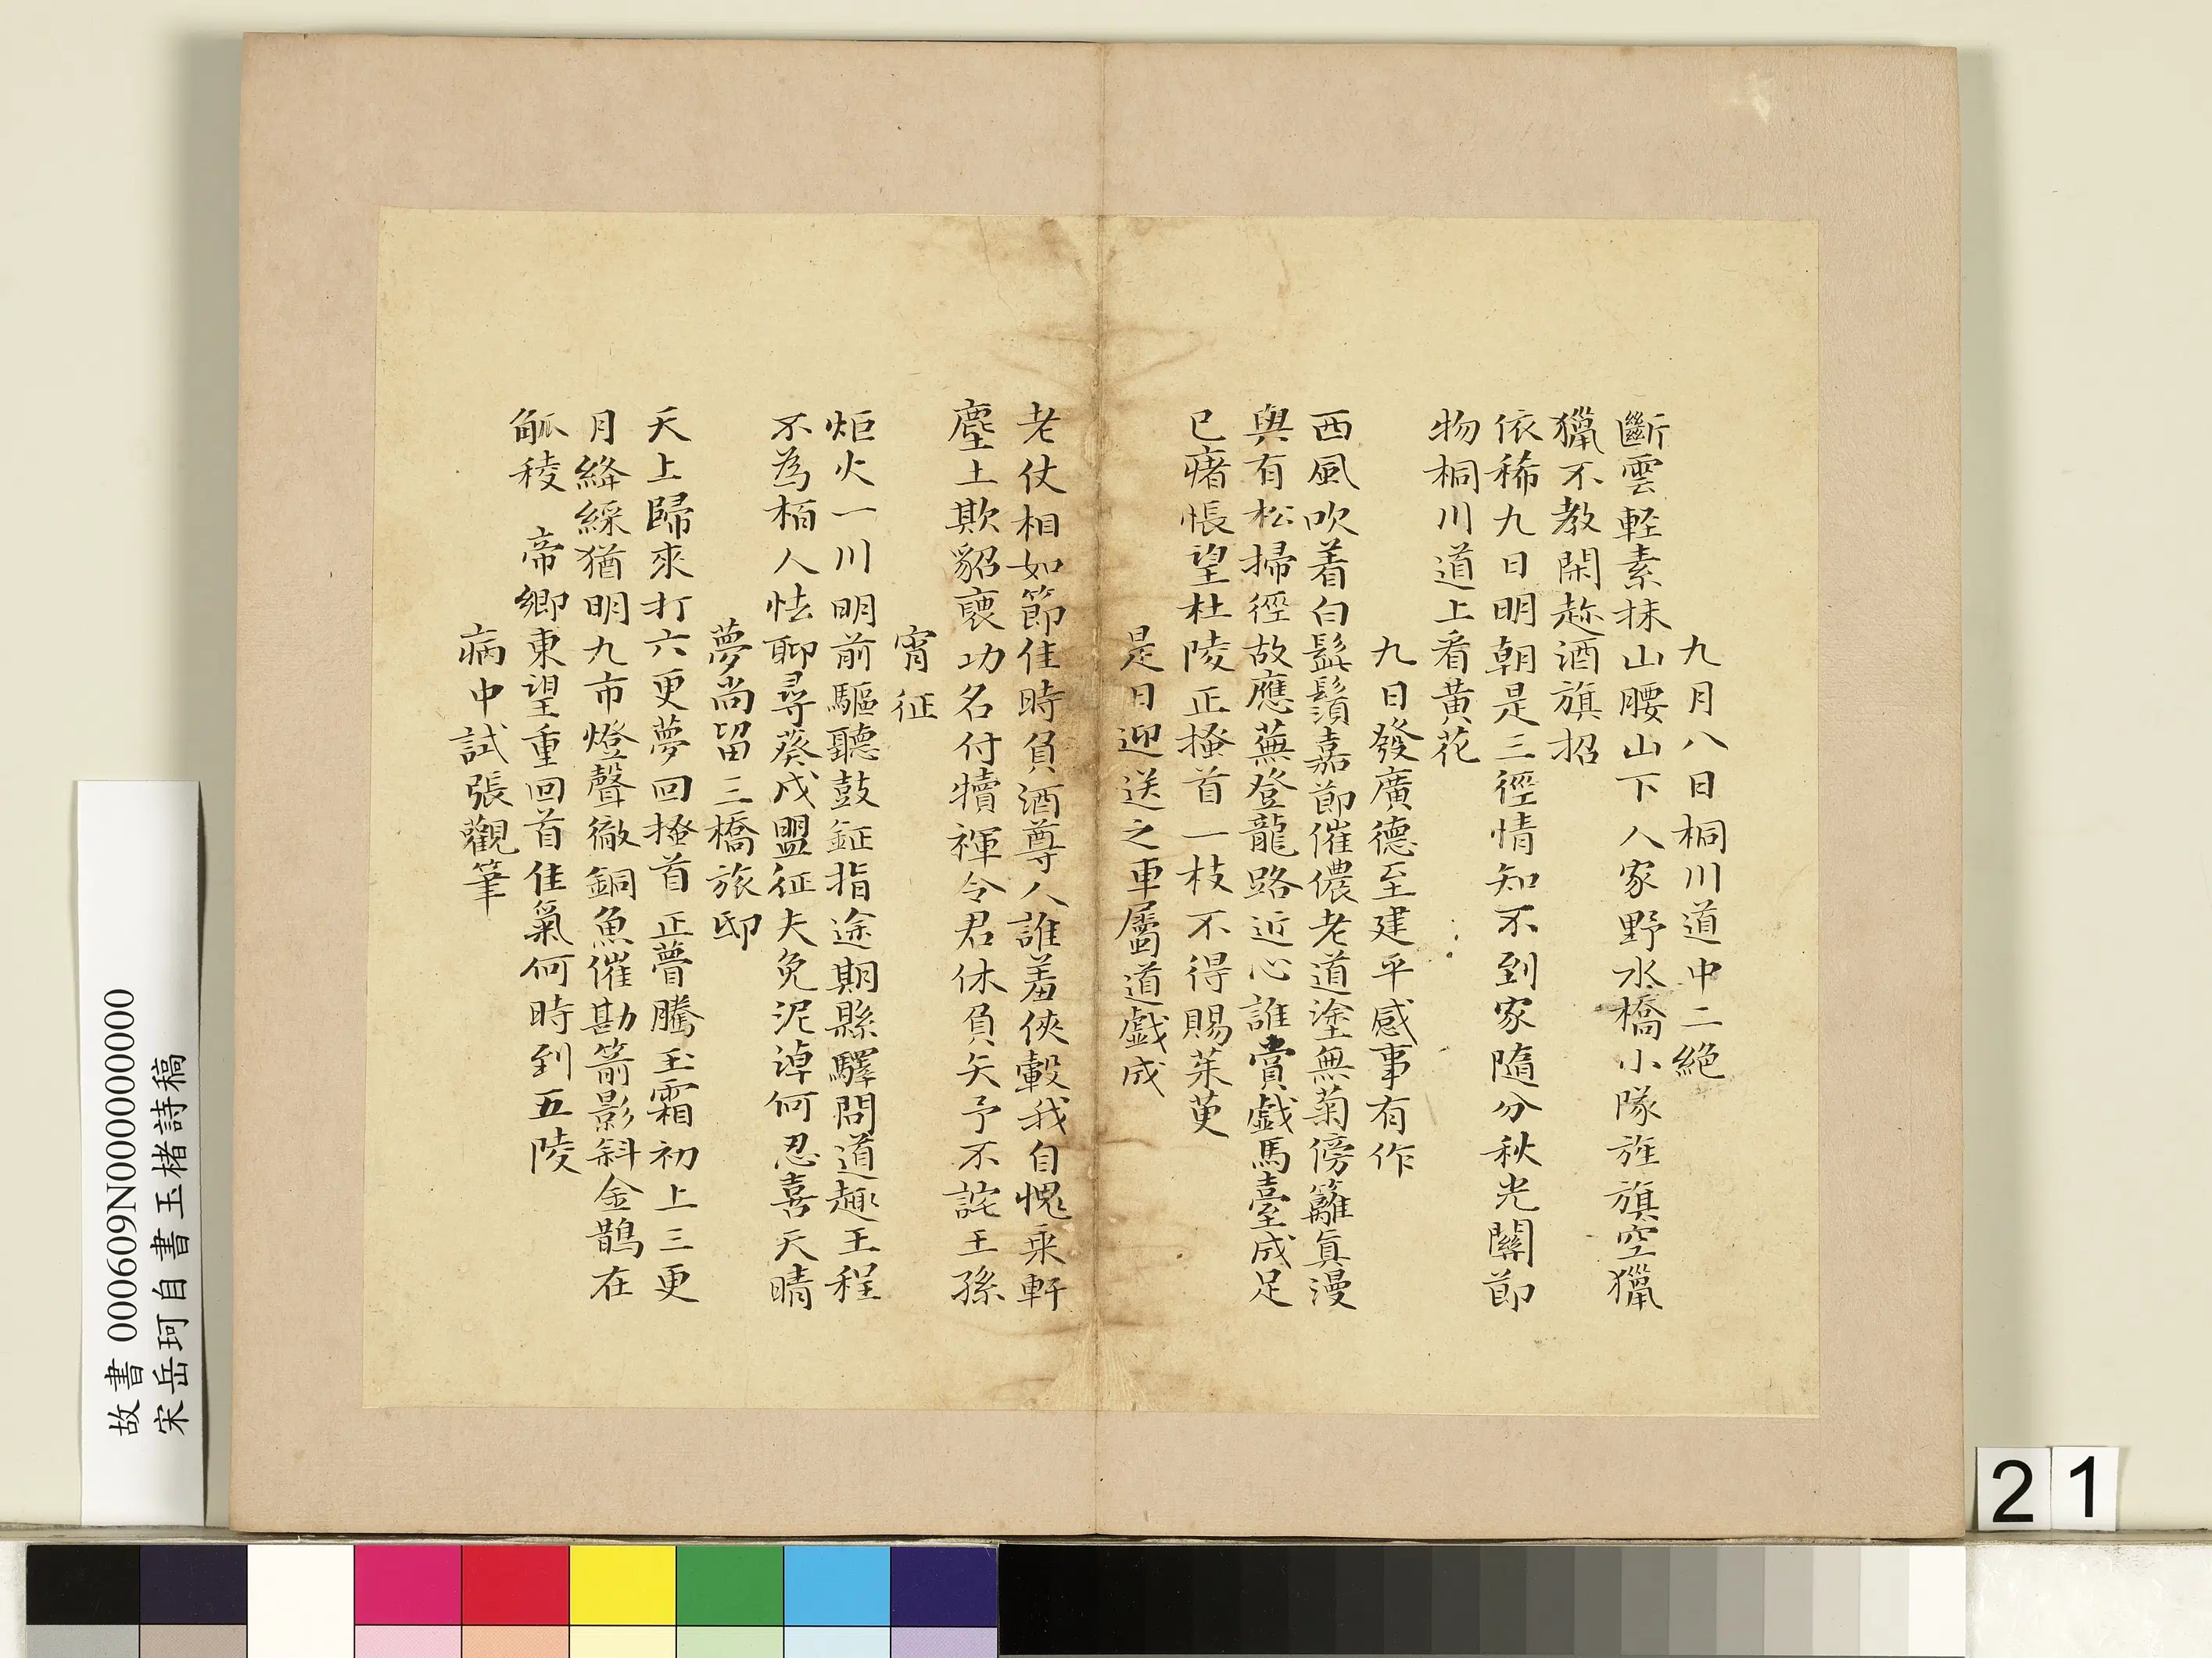 九月八日桐川道中二絕
斷雲輕素抹山腰山下人家野水橋小隊旌旗空獵
獵不教閑趂酒旗招
依稀九日明朝是三徑情知不到家隨分秋光關節
物桐川道上看黃花
九日發廣德至建平感事有作
西風吹着白髭鬚嘉節催儂老道塗無菊傍籬真漫
與有松掃徑故應蕪登龍路近心誰賞戲馬臺成足
已瘏悵望杜陵正搔首一枝不得賜茱萸
是日迎送之車屬道戲成
老仗相如節佳時負酒尊人誰羞俠轂我自愧乘軒
塵土欺貂裘功名付犢褌令君休負矢予不詫王孫
宵征
炬火一川明前驅聽鼓鉦指途期縣驛問道趣王程
不為栢人怯聊尋葵戍盟征夫免泥淖何忍喜天晴
夢尚留三橋旅邸
天上歸來打六更夢回搔首正瞢騰玉霜初上三更
月絳綵猶明九市燈聲徹銅魚催勘箭影斜金鵲在
觚稜 帝鄉東望重回首佳氣何時到五陵
病中試張觀筆
故書 000609N000000000
宋岳珂自書玉楮詩稿
21